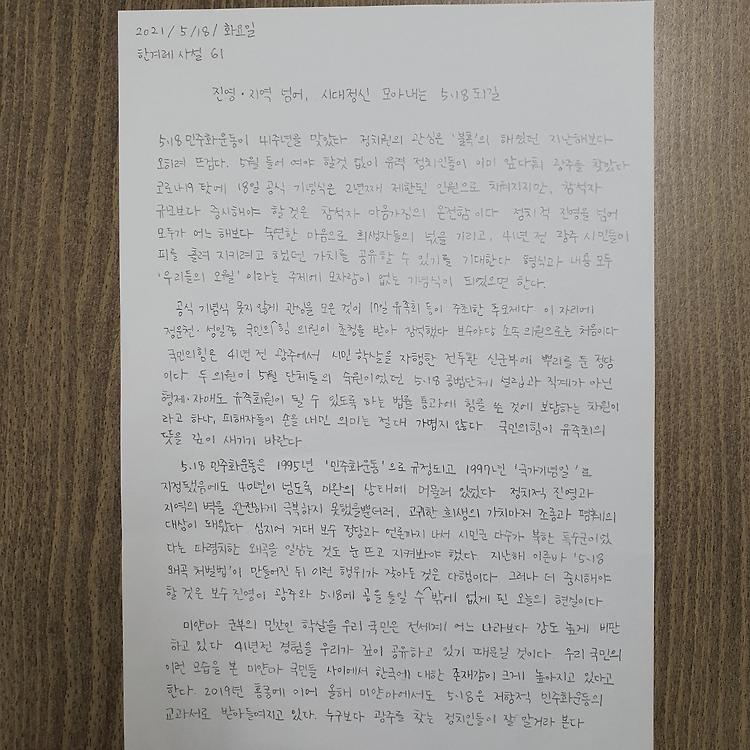 2021/5/18/ 화요일
한겨레 사설 61
진영·지역 넘어, 시대정신 모아내는 5·18 되길
5·18 민주화운동이 41주년을 맞았다 정치권의 관심은 '불혹'의 해였던 지난해보다
오히려 뜨겁다. 5월 들어 여야 할것 없이 유력 정치인들이 이미 앞다퉈 광주를 찾았다
코로나19 탓에 18일 공식 기념식은 2년째 제한된 인원으로 치뤄지지만, 참석자
규모보다 중시해야 할 것은 참석자 마음가짐의 온전함이다 정치적 진영을 넘어
모두가 어느 해보다 숙연한 마음으로 희생자들의 넋을 기리고, 41년 전 광주 시민들이
피를 흘려 지키려고 했던 가치를 공유할 수 있기를 기대한다 형식과 내용 모두
'우리들의 오월' 이라는 주제에 모자람이 없는 기념식이 되었으면 한다.
공식 기념식 못지 않게 관심을 모은 것이 17일 유족회 등이 주최한 추모제다 이 자리에
정운천·성일종 국민의힘 의원이 초청을 받아 참석했다 보수야당 소속 의원으로는 처음이다
국민의힘은 41년 전 광주에서 시민 학살을 자행한 전두환 신군부에 뿌리를 둔 정당
이다 두 의원이 5월 단체들의 숙원이었던 5·18 공법단체 설립과 직계가 아닌
형제·자매도 유족회원이 될 수 있도록 하는 법률 통과에 힘을 쓴 것에 보답하는 차원이
라고 하나, 피해자들이 손을 내민 의미는 절대 가볍지 않다 국민의힘이 유족회의
뜻을 깊이 새기기 바란다
5.18 민주화운동은 1995년 '민주화운동'으로 규정되고 1997년 '국가기념일'로
지정됐음에도 40년이 넘도록 미완의 상태에 머물러 있었다 정치적 진영과
지역의 벽을 완전하게 극복하지 못했을뿐더러, 고귀한 희생의 가치마저 조롱과 폄훼의
대상이 돼왔다. 심지어 거대 보수 정당과 언론까지 나서 시민군 다수가 북한 특수군이었
다는 파렴치한 왜곡을 일삼는 것도 눈 뜨고 지켜봐야 했다 지난해 이른바 '5·18
왜곡 처벌법'이 만들어진 뒤 이런 행위가 잦아든 것은 다행이다 그러나 더 중시해야
할 것은 보수 진영이 광주와 5·18에 공을 들일 수밖에 없게 된 오늘의 현실이다
미얀마 군부의 민간인 학살을 우리 국민은 전세계 어느 나라보다 강도 높게 비판
하고 있다 41년전 경험을 우리가 깊이 공유하고 있기 때문일 것이다. 우리 국민의
이런 모습을 본 미얀마 국민들 사이에서 한국에 대한 존재감이 크게 높아지고 있다고
한다. 2019년 홍콩에 이어 올해 미얀마에서도 5·18은 저항적 민주화운동의
교과서로 받아들여지고 있다. 누구보다 광주를 찾는 정치인들이 잘 알거라 본다